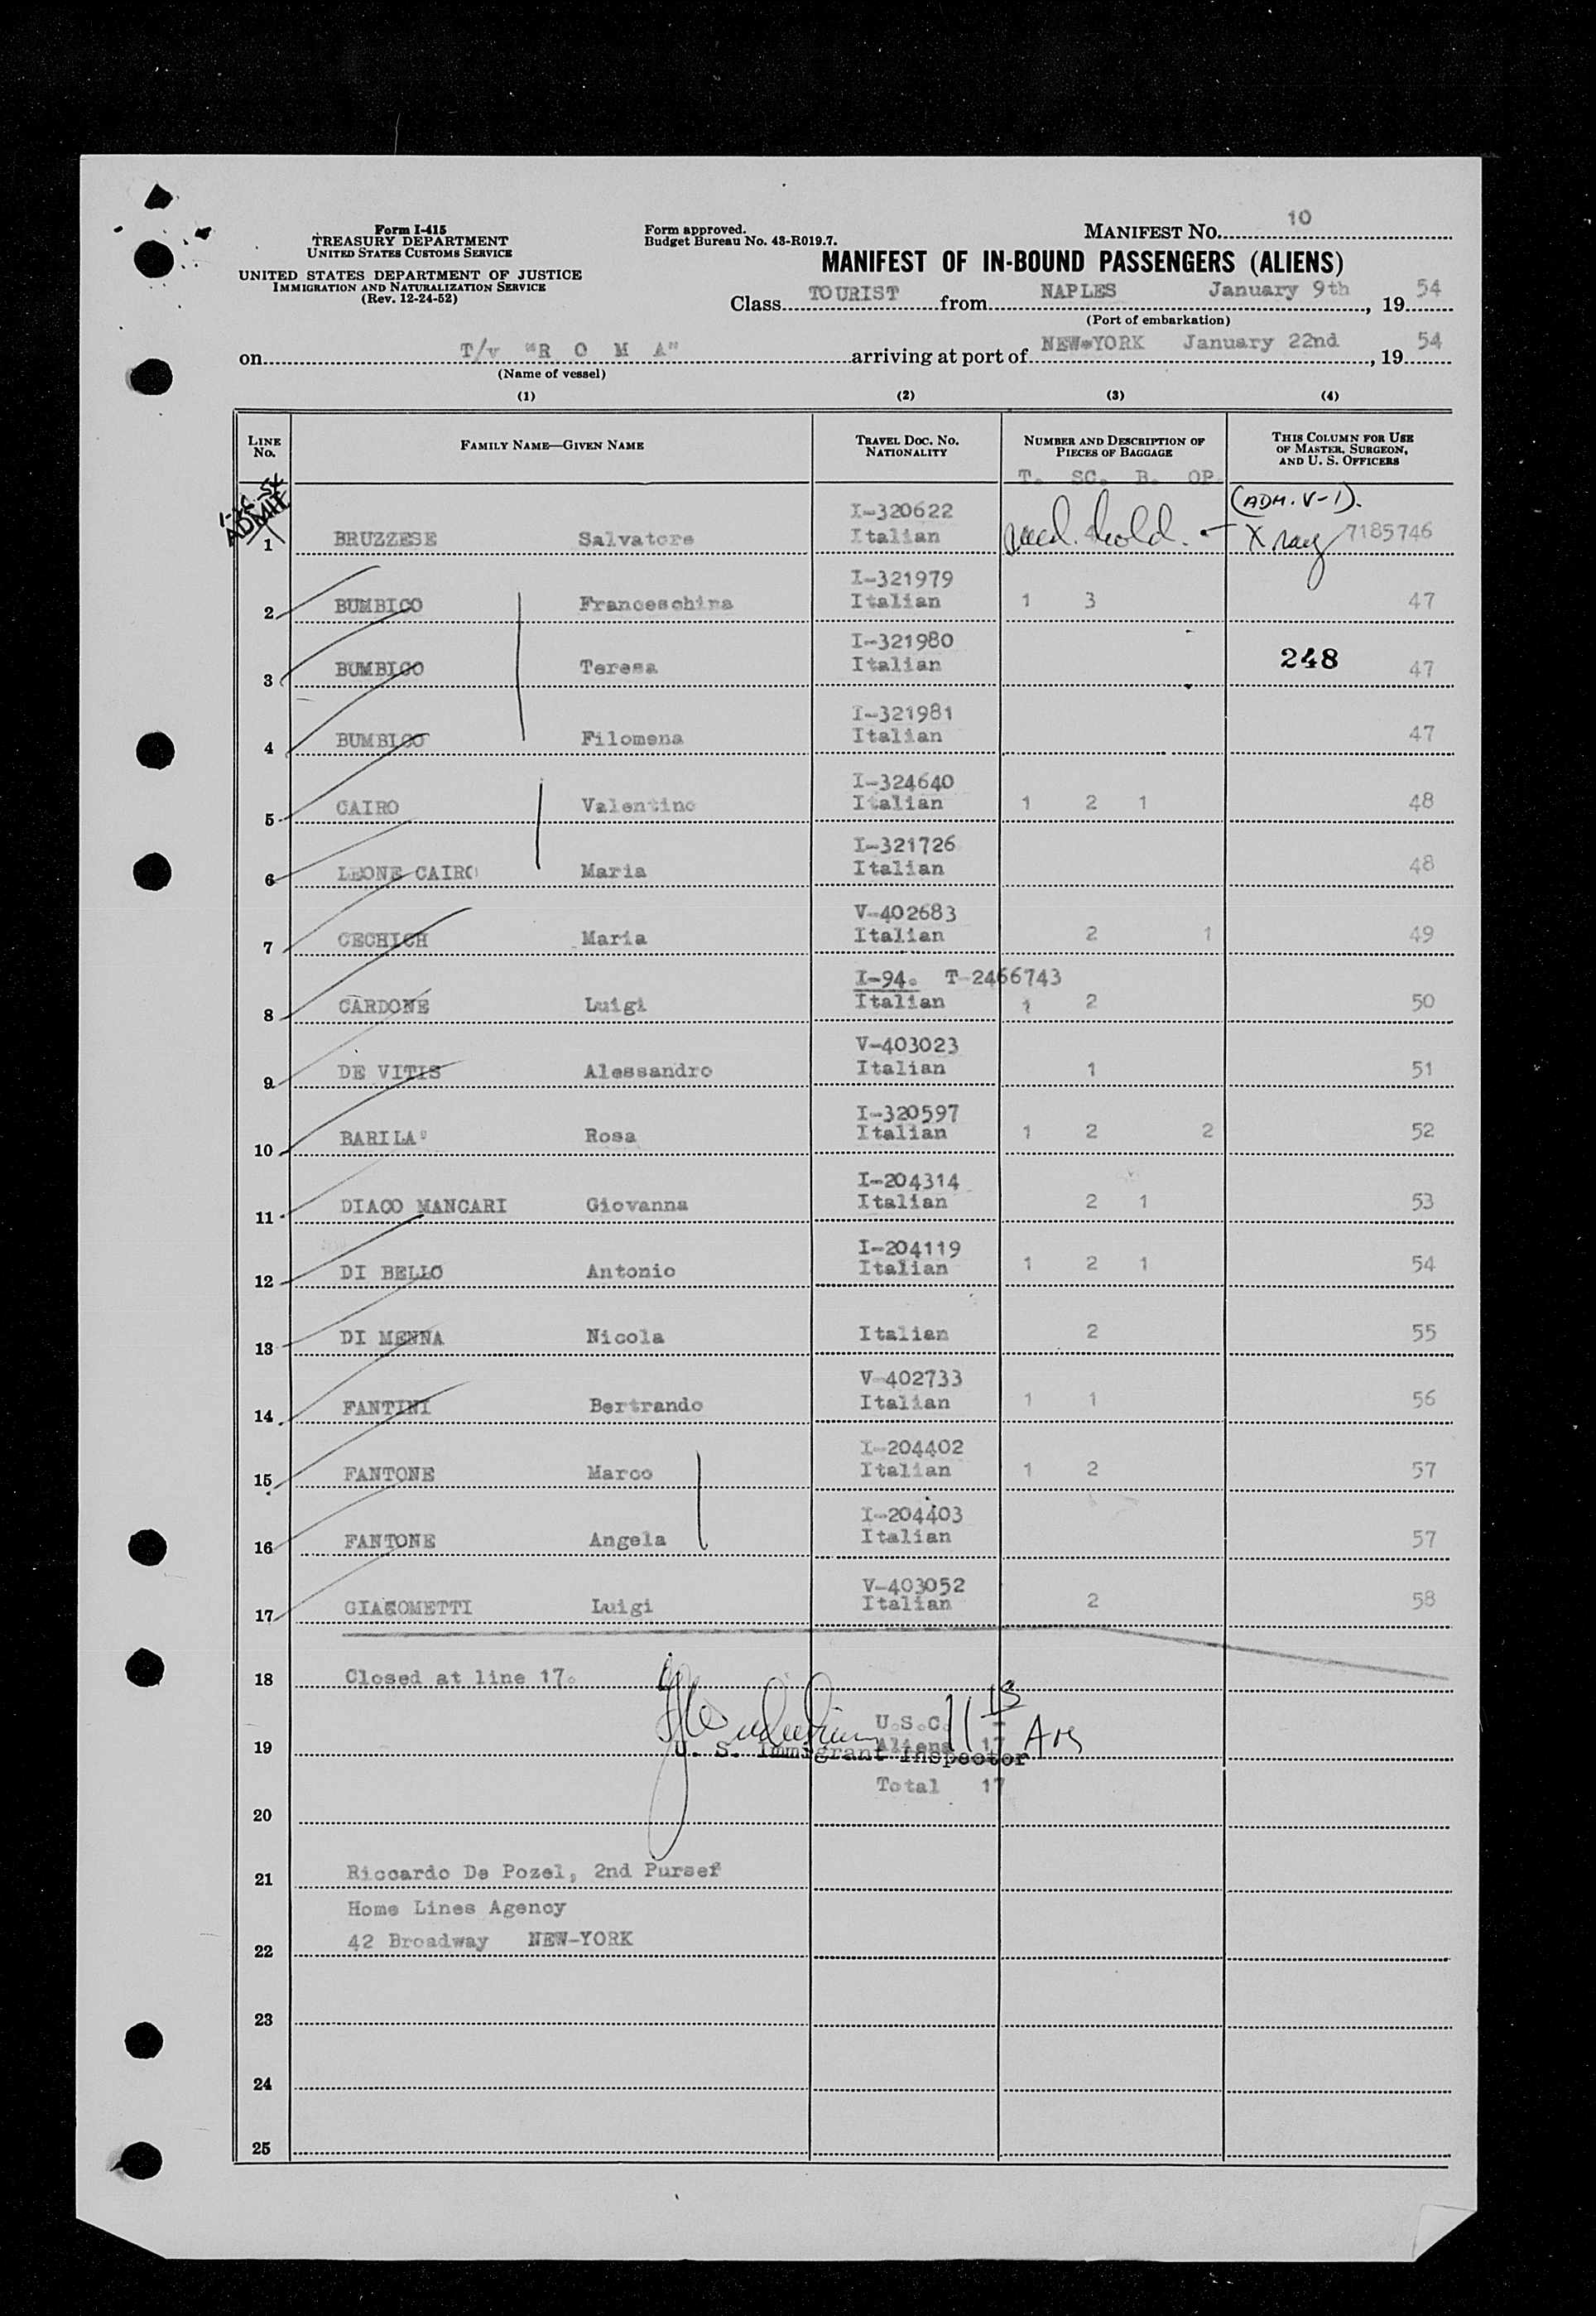 Form I-415
TREASURY DEPARTMENT
UNITED STATES CUSTOMS SERVICE
UNITED STATES DEPARTMENT OF JUSTICE
IMMIGRATION AND NATURALIZATION SERVICE
(Rev. 12-24-52)
Form approved.
Budget Bureau No. 43-R019.7.
MANIFEST NO. 10
MANIFEST OF IN-BOUND PASSENGERS (ALIENS)
Class TOURIST from NAPLES January 9th, 19 54
(Port of embarkation)
on T/v "R O M A" arriving at port of NEW-YORK January 22nd, 19 54
(Name of vessel)
(1) (2) (3) (4)
LINE NO. FAMILY NAME—GIVEN NAME TRAVEL DOC. NO. NATIONALITY NUMBER AND DESCRIPTION OF PIECES OF BAGGAGE THIS COLUMN FOR USE OF MASTER, SURGEON, AND U. S. OFFICERS
T. SC. B. OP.
ADMIT (ADM. V-1).
I-320622
1 BRUZZESE Salvatore Italian med. hold. - X ray 7185746
I-321979
2 BUMBICO Franceschina Italian 1 3 47
I-321980
3 BUMBICO Teresa Italian 248 47
I-321981
4 BUMBICO Filomena Italian 47
I-324640
5 CAIRO Valentino Italian 1 2 1 48
I-321726
6 LEONE CAIRO Maria Italian 48
V-402683
7 CECHICH Maria Italian 2 1 49
I-94. T-2466743
8 CARDONE Luigi Italian 1 2 50
V-403023
9 DE VITIS Alessandro Italian 1 51
I-320597
10 BARILA' Rosa Italian 1 2 2 52
I-204314
11 DIACO MANCARI Giovanna Italian 2 1 53
I-204119
12 DI BELLO Antonio Italian 1 2 1 54
13 DI MENNA Nicola Italian 2 55
V-402733
14 FANTINI Bertrando Italian 1 1 56
I-204402
15 FANTONE Marco Italian 1 2 57
I-204403
16 FANTONE Angela Italian 57
V-403052
17 GIACOMETTI Luigi Italian 2 58
18 Closed at line 17.
U.S.C. -
19 Aliens 17
U. S. Immigrant Inspector
Total 17
20
21 Riccardo De Pozel, 2nd Purser
Home Lines Agency
22 42 Broadway NEW-YORK
23
24
25